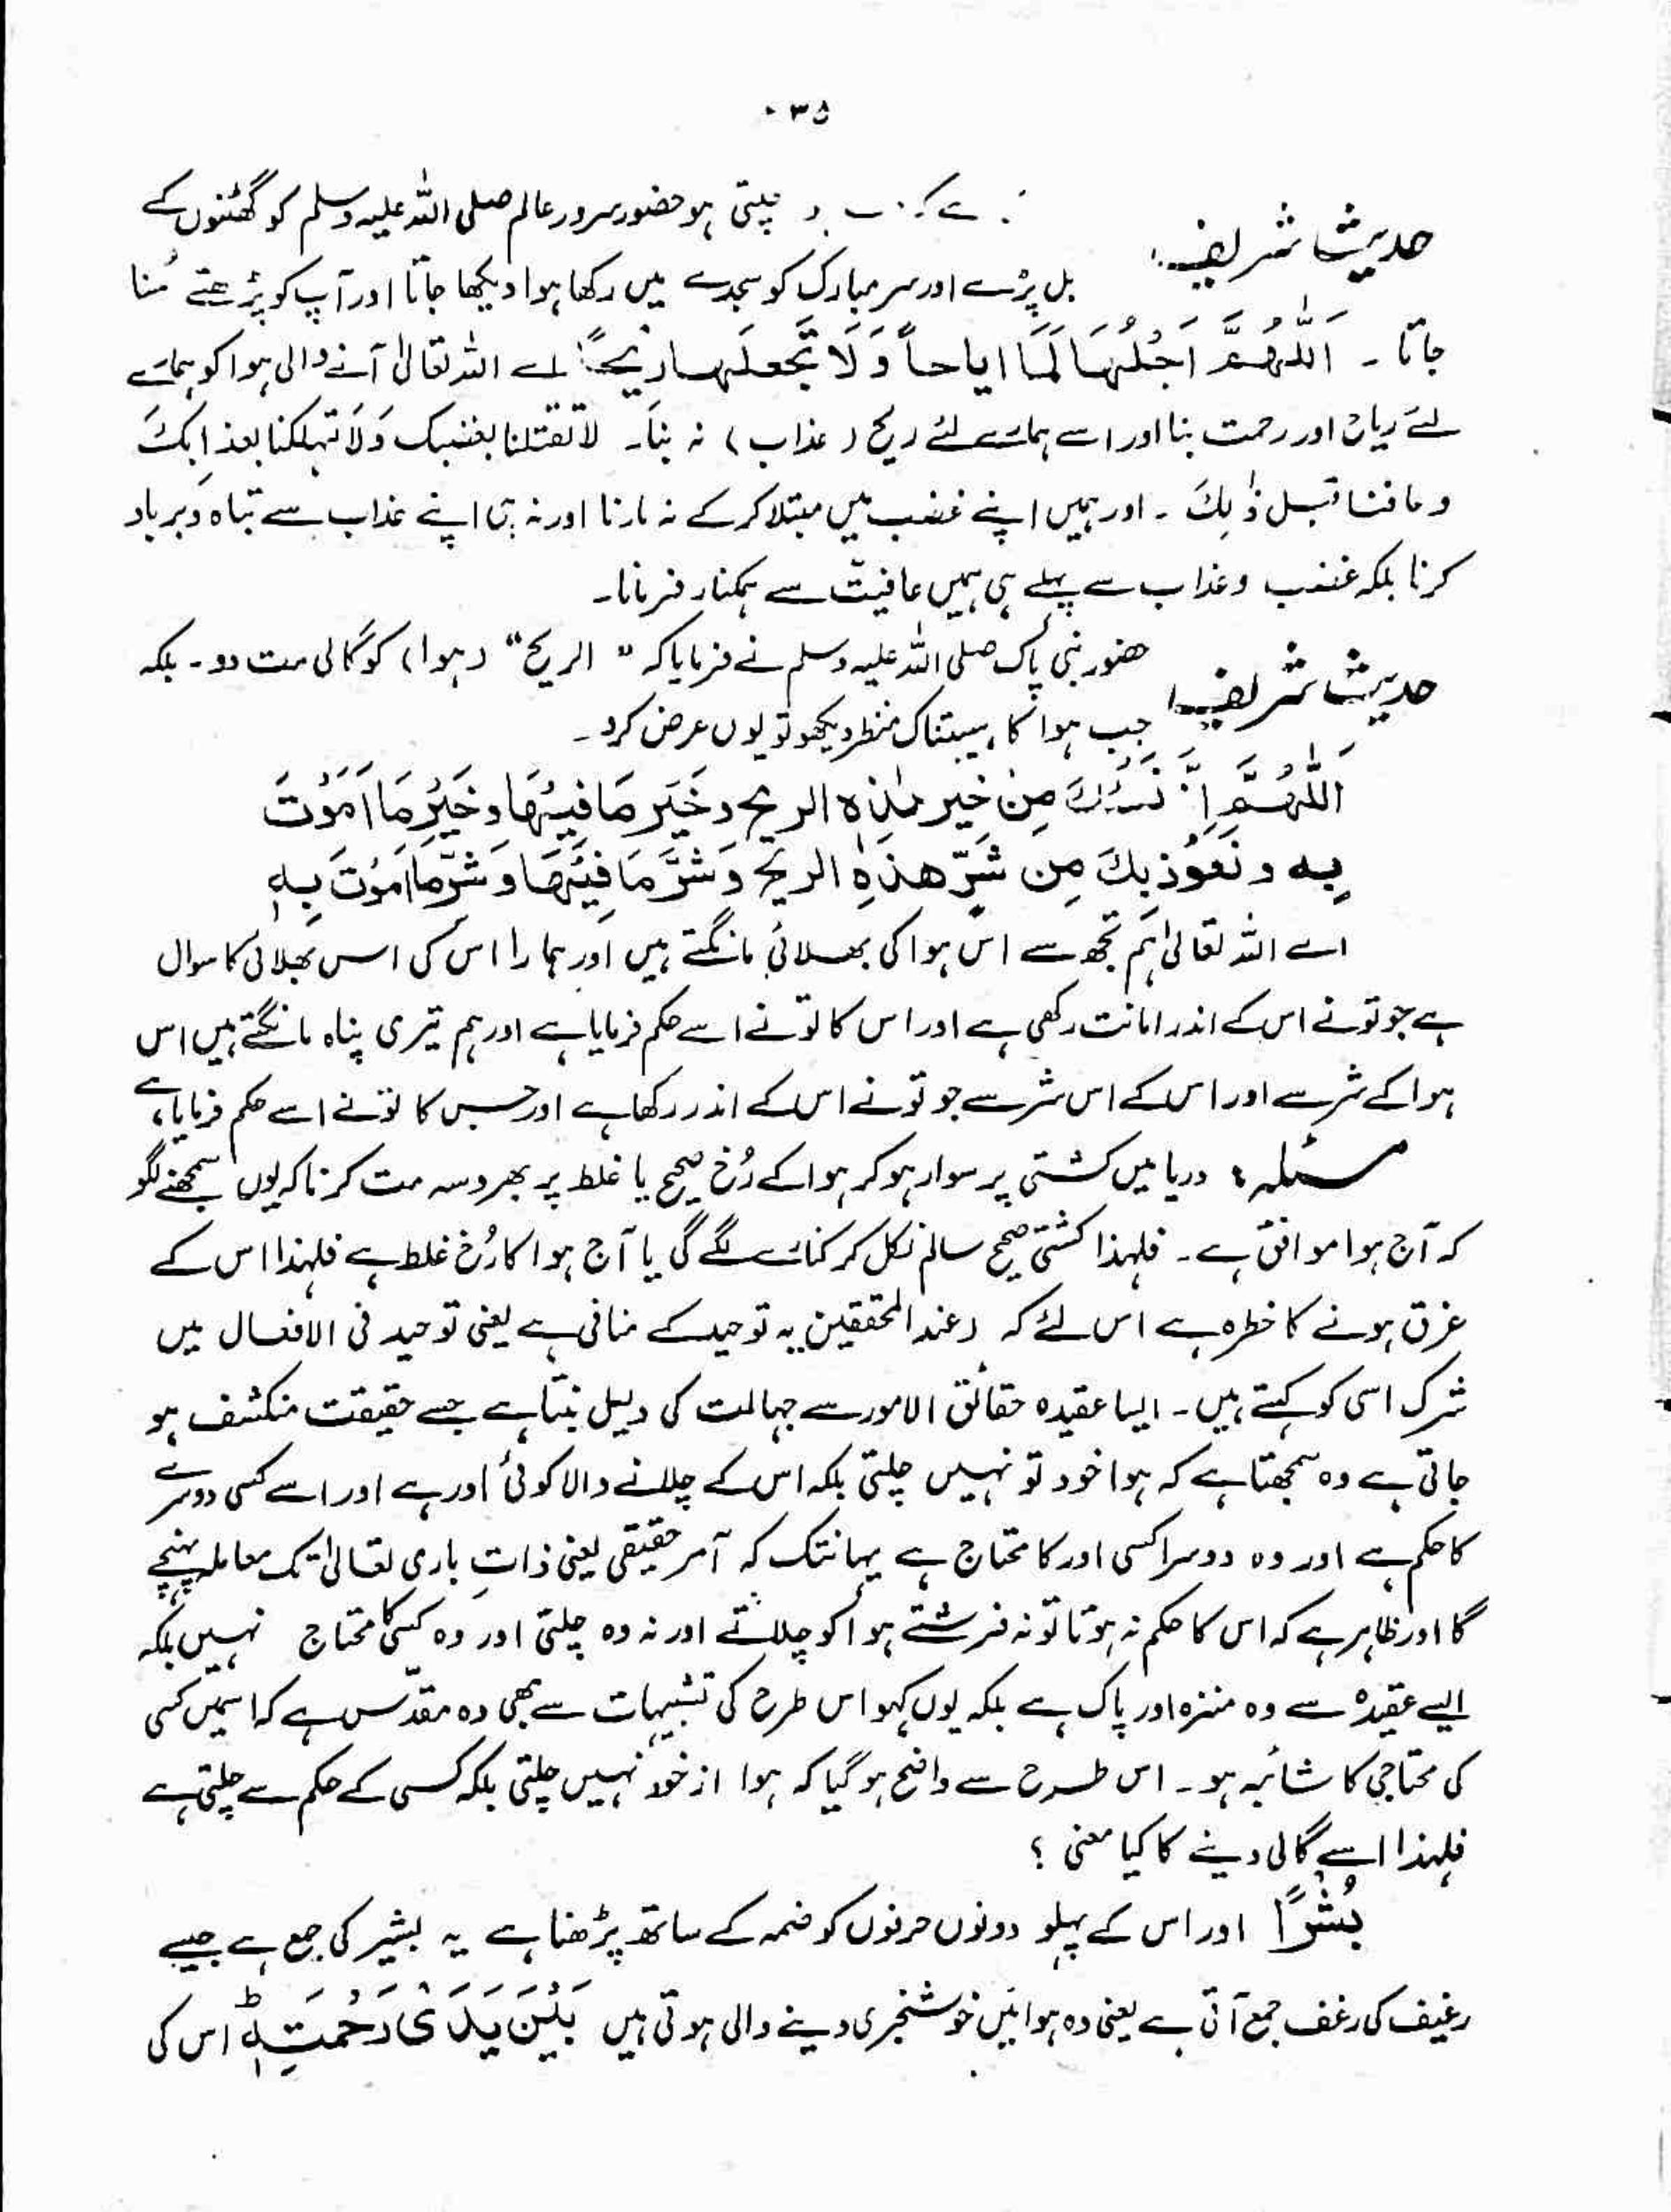 ۳۵۰
حدیث شریف: چلتی ہو حضور سرور عالم صلی اللہ علیہ وسلم کو گھٹنوں کے
بل پڑے اور سر مبارک کو سجدے میں رکھا ہوا دیکھا جاتا اور آپ کو پڑھتے سُنا
جاتا ۔ اَللّٰهُمَّ اجْلُهَا لَمَا ایاحاً وَلَا تَجعلَها رِیْحاً اے اللہ تعالیٰ آنے والی ہوا کو ہمارے
لئے ریاح اور رحمت بنا اور اسے ہمارے لئے ریح (عذاب) نہ بنا۔ لا تقتلنا بغضبک وَلَا تہلکنا بعذابکَ
وعافنا قبل ذٰلِکَ ۔ اور ہمیں اپنے غضب میں مبتلا کر کے نہ مارنا اور نہ ہی اپنے عذاب سے تباہ و برباد
کرنا بلکہ غضب و عذاب سے پہلے ہی ہمیں عافیت سے ہمکنار فرمانا۔
حدیث شریف: حضور نبی پاک صلی اللہ علیہ وسلم نے فرمایا کہ " الریح" (ہوا) کو گالی مت دو ۔ بلکہ
جب ہوا کا ہیبتناک منظر دیکھو تو یوں عرض کرو ۔
اَللّٰهُمَّ اِنَّ نَسْئَلُكَ مِنْ خَیر هٰذِهِ الریح وَخَیَر مَا فِیْهَا وَخَیْرِ مَا اَمَوُتَ
بِه وَنَعَوُذ بِكَ مِن شَرِّ هٰذِهِ الریح وَشَرَّ مَا فِیْهَا وَشَرِّ مَا اَمَوُتَ بِهٖ
اے اللہ تعالیٰ ہم تجھ سے اس ہوا کی بھلائی مانگتے ہیں اور ہمارا اس کی اس بھلائی کا سوال
ہے جو تو نے اس کے اندر امانت رکھی ہے اور اس کا تو نے اسے حکم فرمایا ہے اور ہم تیری پناہ مانگتے ہیں اس
ہوا کے شر سے اور اس کے اس شر سے جو تو نے اس کے اندر رکھا ہے اور جس کا تو نے اسے حکم فرمایا ہے
مسئلہ: دریا میں کشتی پر سوار ہو کر ہوا کے رُخ صحیح یا غلط پر بھروسہ مت کرنا کہ یوں سمجھنے لگو
کہ آج ہوا موافق ہے ۔ فلہذا کشتی صحیح سالم نکل کر کنارے لگے گی یا آج ہوا کا رُخ غلط ہے فلہذا اس کے
غرق ہونے کا خطرہ ہے اس لئے کہ (عند المحققین یہ توحید کے منافی ہے یعنی توحید فی الافعال میں
شرک اسی کو کہتے ہیں ۔ ایسا عقیدہ حقائق الامور سے جہالت کی دلیل بنتا ہے جسے حقیقت منکشف ہو
جاتی ہے وہ سمجھتا ہے کہ ہوا خود تو نہیں چلتی بلکہ اس کے چلانے والا کوئی اور ہے اور اسے کسی دوسرے
کا حکم ہے اور وہ دوسرا کسی اور کا محتاج ہے یہانتک کہ آمر حقیقی یعنی ذاتِ باری تعالیٰ تک معاملہ پہنچے
گا اور ظاہر ہے کہ اس کا حکم نہ ہوتا تو نہ فرشتے ہوا کو چلاتے اور نہ وہ چلتی اور وہ کسی کا محتاج نہیں بلکہ
ایسے عقیدہ سے وہ منزہ اور پاک ہے بلکہ یوں کہو اس طرح کی تشبیہات سے بھی وہ مقدّس ہے کہ اسمیں کسی
کی محتاجی کا شائبہ ہو ۔ اس طرح سے واضح ہو گیا کہ ہوا از خود نہیں چلتی بلکہ کسی کے حکم سے چلتی ہے
فلہذا اسے گالی دینے کا کیا معنی ؟
بُشْرًا اور اس کے پہلو دونوں حرفوں کو ضمہ کے ساتھ پڑھنا ہے یہ بشیر کی جمع ہے جیسے
رغیف کی رغف جمع آتی ہے یعنی وہ ہوائیں خوشخبری دینے والی ہوتی ہیں بَیْنَ یَدَیْ رَحْمَتِهٖ ؕ اس کی